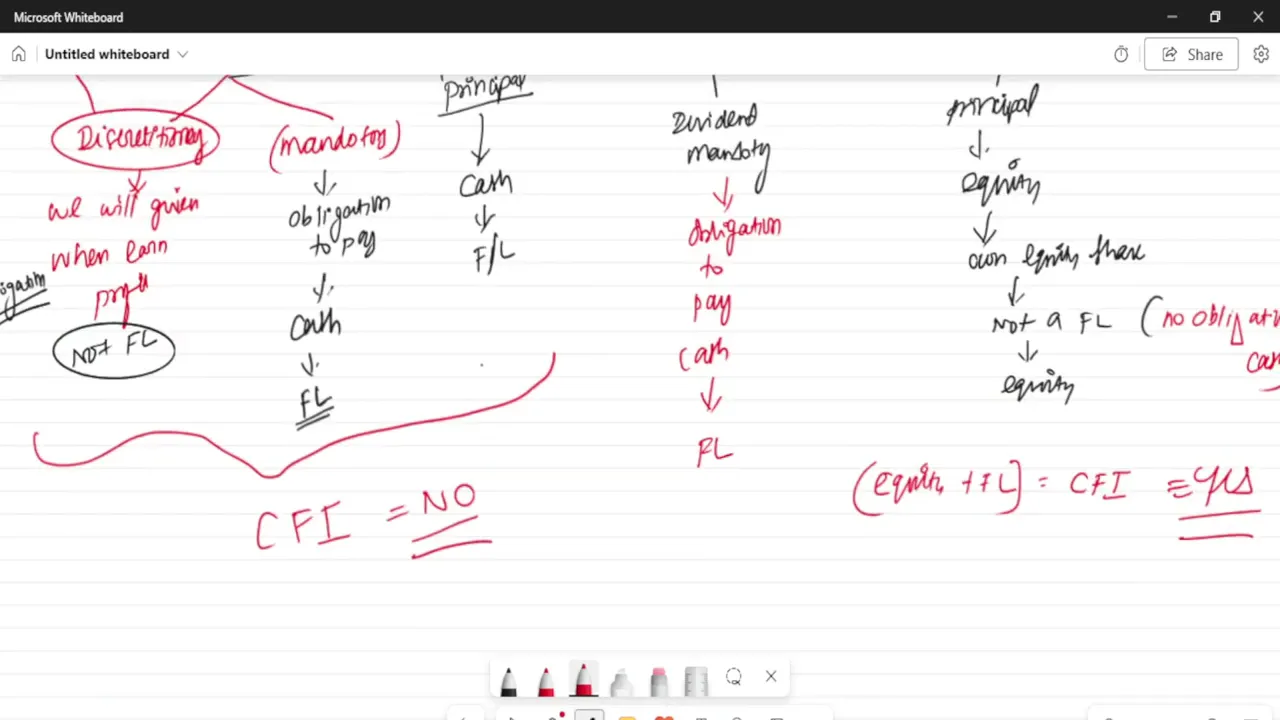 Microsoft Whiteboard
Untitled whiteboard
Share
Discretitionary
we will given
when earn
NOT FL
(mandotory)
obligation
to pay
Cash
FL
principal
Cash
F/L
CFI = NO
Dividend
mandoty
obligation
to
pay
cash
FL
principal
equity
own equity share
NOT a FL (no obligati
cas
equity
(equity + FL) = CFI = yes